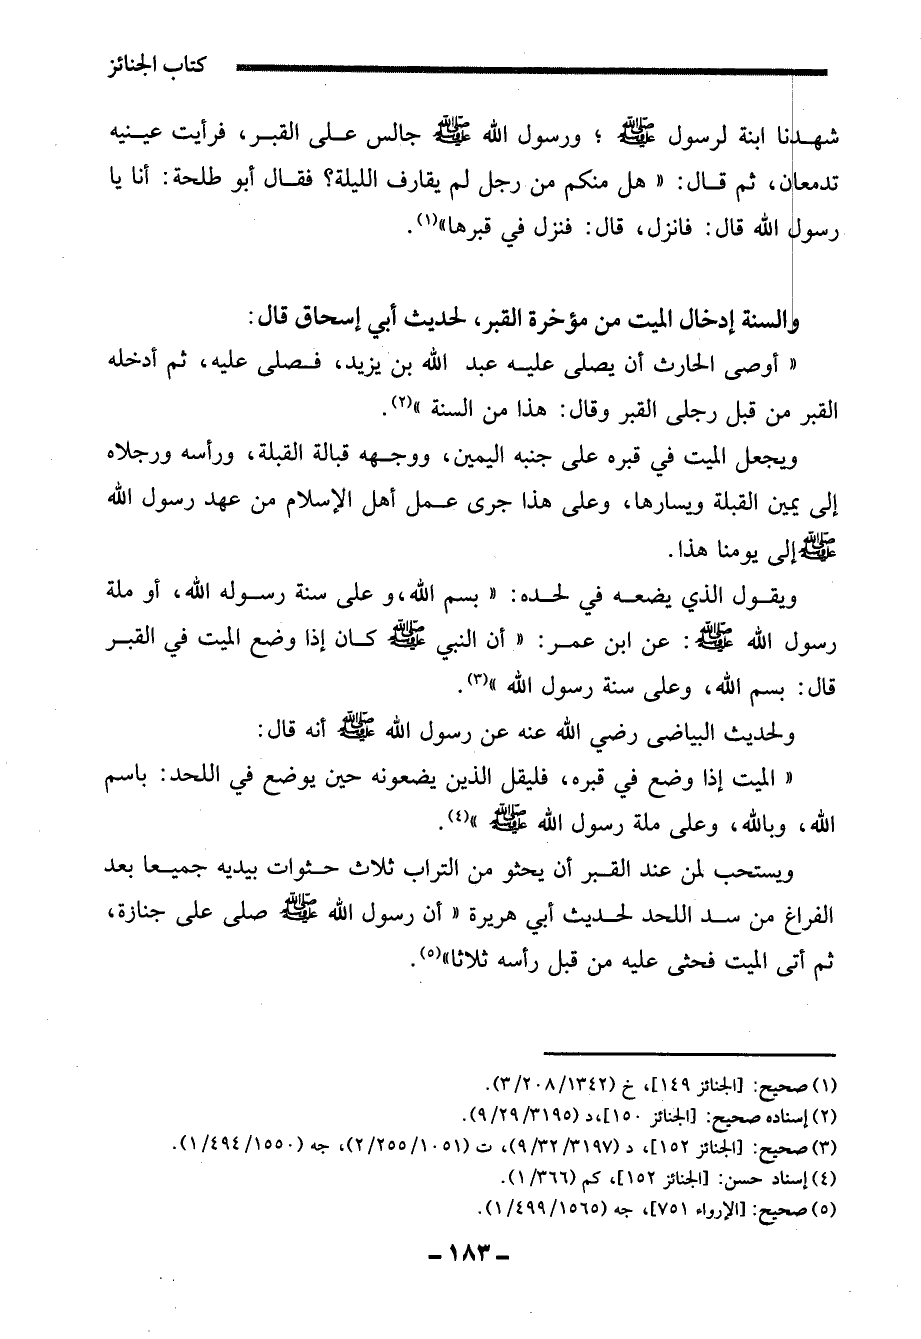 كتاب الجنائز
شهدنا ابنة لرسول ﷺ ؛ ورسول الله ﷺ جالس على القبر، فرأيت عينيه
تدمعان، ثم قال: « هل منكم من رجل لم يقارف الليلة؟ فقال أبو طلحة: أنا يا
رسول الله قال: فانزل، قال: فنزل في قبرها»(١).
والسنة إدخال الميت من مؤخرة القبر، لحديث أبي إسحاق قال:
« أوصى الحارث أن يصلى عليه عبد الله بن يزيد، فصلى عليه، ثم أدخله
القبر من قبل رجلى القبر وقال: هذا من السنة »(٢).
ويجعل الميت في قبره على جنبه اليمين، ووجهه قبالة القبلة، ورأسه ورجلاه
إلى يمين القبلة ويسارها، وعلى هذا جرى عمل أهل الإسلام من عهد رسول الله
ﷺ إلى يومنا هذا.
ويقول الذي يضعه في لحده: « بسم الله،و على سنة رسوله الله، أو ملة
رسول الله ﷺ : عن ابن عمر: « أن النبي ﷺ كان إذا وضع الميت في القبر
قال: بسم الله، وعلى سنة رسول الله »(٣).
ولحديث البياضى رضي الله عنه عن رسول الله ﷺ أنه قال:
« الميت إذا وضع في قبره، فليقل الذين يضعونه حين يوضع في اللحد: باسم
الله، وبالله، وعلى ملة رسول الله ﷺ »(٤).
ويستحب لمن عند القبر أن يحثو من التراب ثلاث حثوات بيديه جميعا بعد
الفراغ من سد اللحد لحديث أبي هريرة « أن رسول الله ﷺ صلى على جنازة،
ثم أتى الميت فحثى عليه من قبل رأسه ثلاثا»(٥).
(١) صحيح: [الجنائز ١٤٩]، خ (٣/٢٠٨/١٣٤٢).
(٢) إسناده صحيح: [الجنائز ١٥٠]،د (٩/٢٩/٣١٩٥).
(٣) صحيح: [الجنائز ١٥٢]، د (٩/٣٢/٣١٩٧)، ت (٢/٢٥٥/١٠٥١)، جه (١/٤٩٤/١٥٥٠).
(٤) إسناد حسن: [الجنائز ١٥٢]، كم (١/٣٦٦).
(٥) صحيح: [الإرواء ٧٥١]، جه (١/٤٩٩/١٥٦٥).
- ١٨٣ -